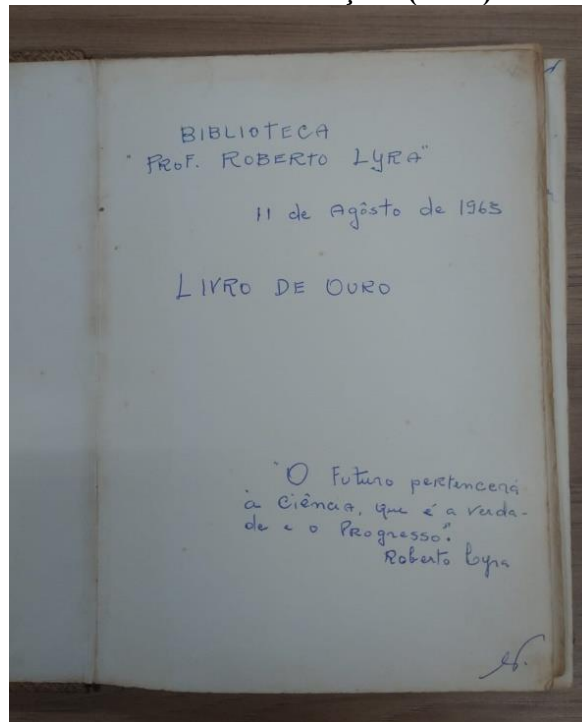 BIBLIOTECA
"PROF. ROBERTO LYRA"
11 de Agôsto de 1965
LIVRO DE OURO
"O Futuro pertencerá
à Ciência, que é a verda-
de e o Progresso."
Roberto Lyra